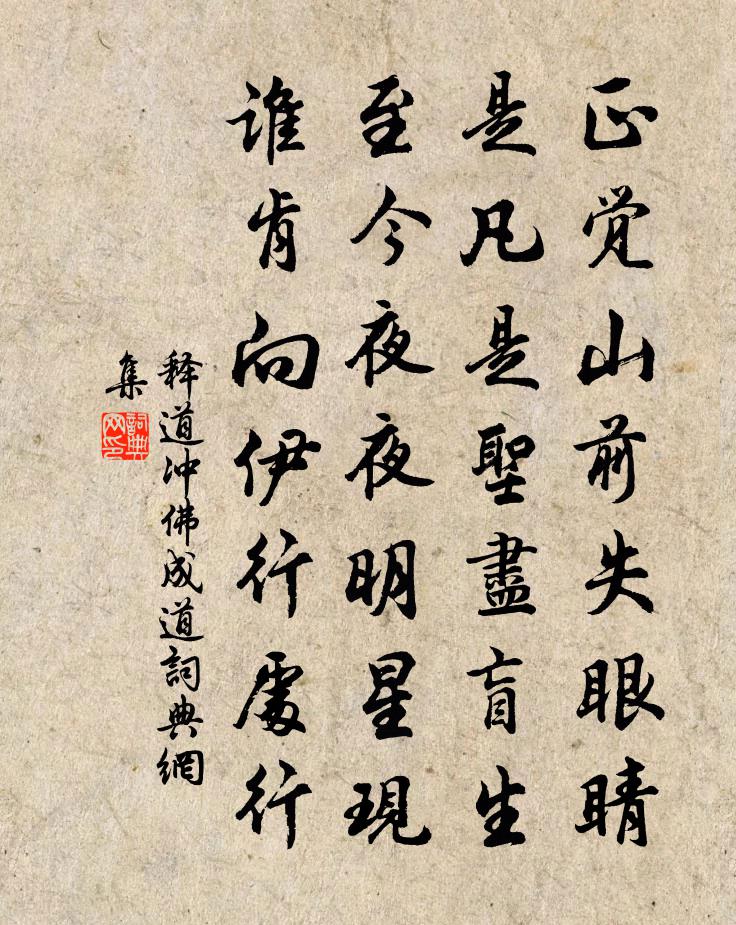 正觉山前失眼睛
是凡是聖盡盲生
至今夜夜明星現
谁肯向伊行處行
释道冲佛成道詞典網
集
詞典网印